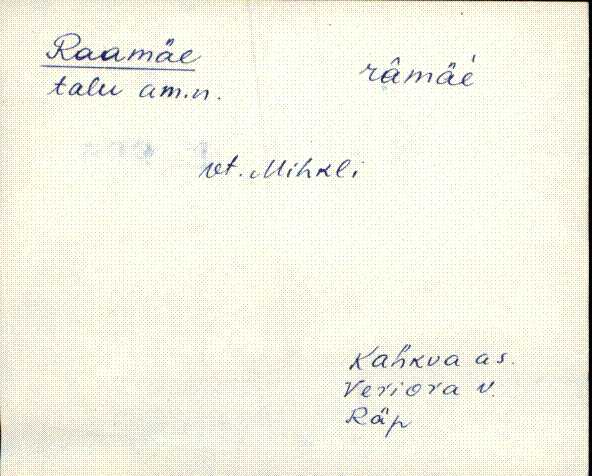 Raamäe
râmäè
talu am.n.
vt. Mihkli
Kahkva as.
Veriora v.
Räp